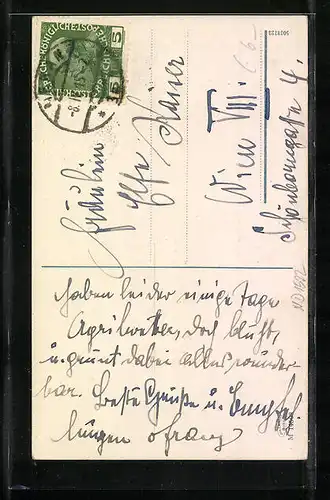 KAIS. KÖNIGLICHE ÖSTERR.
5
5
Fräulein
Else Kaiser
Wien VIII.
Schönborngasse 4.
haben leider einige Tage
Aprilwetter, doch blüht,
u. grünt dabei alles wunder-
bar. Beste Grüße u. Empfeh-
lungen Franz